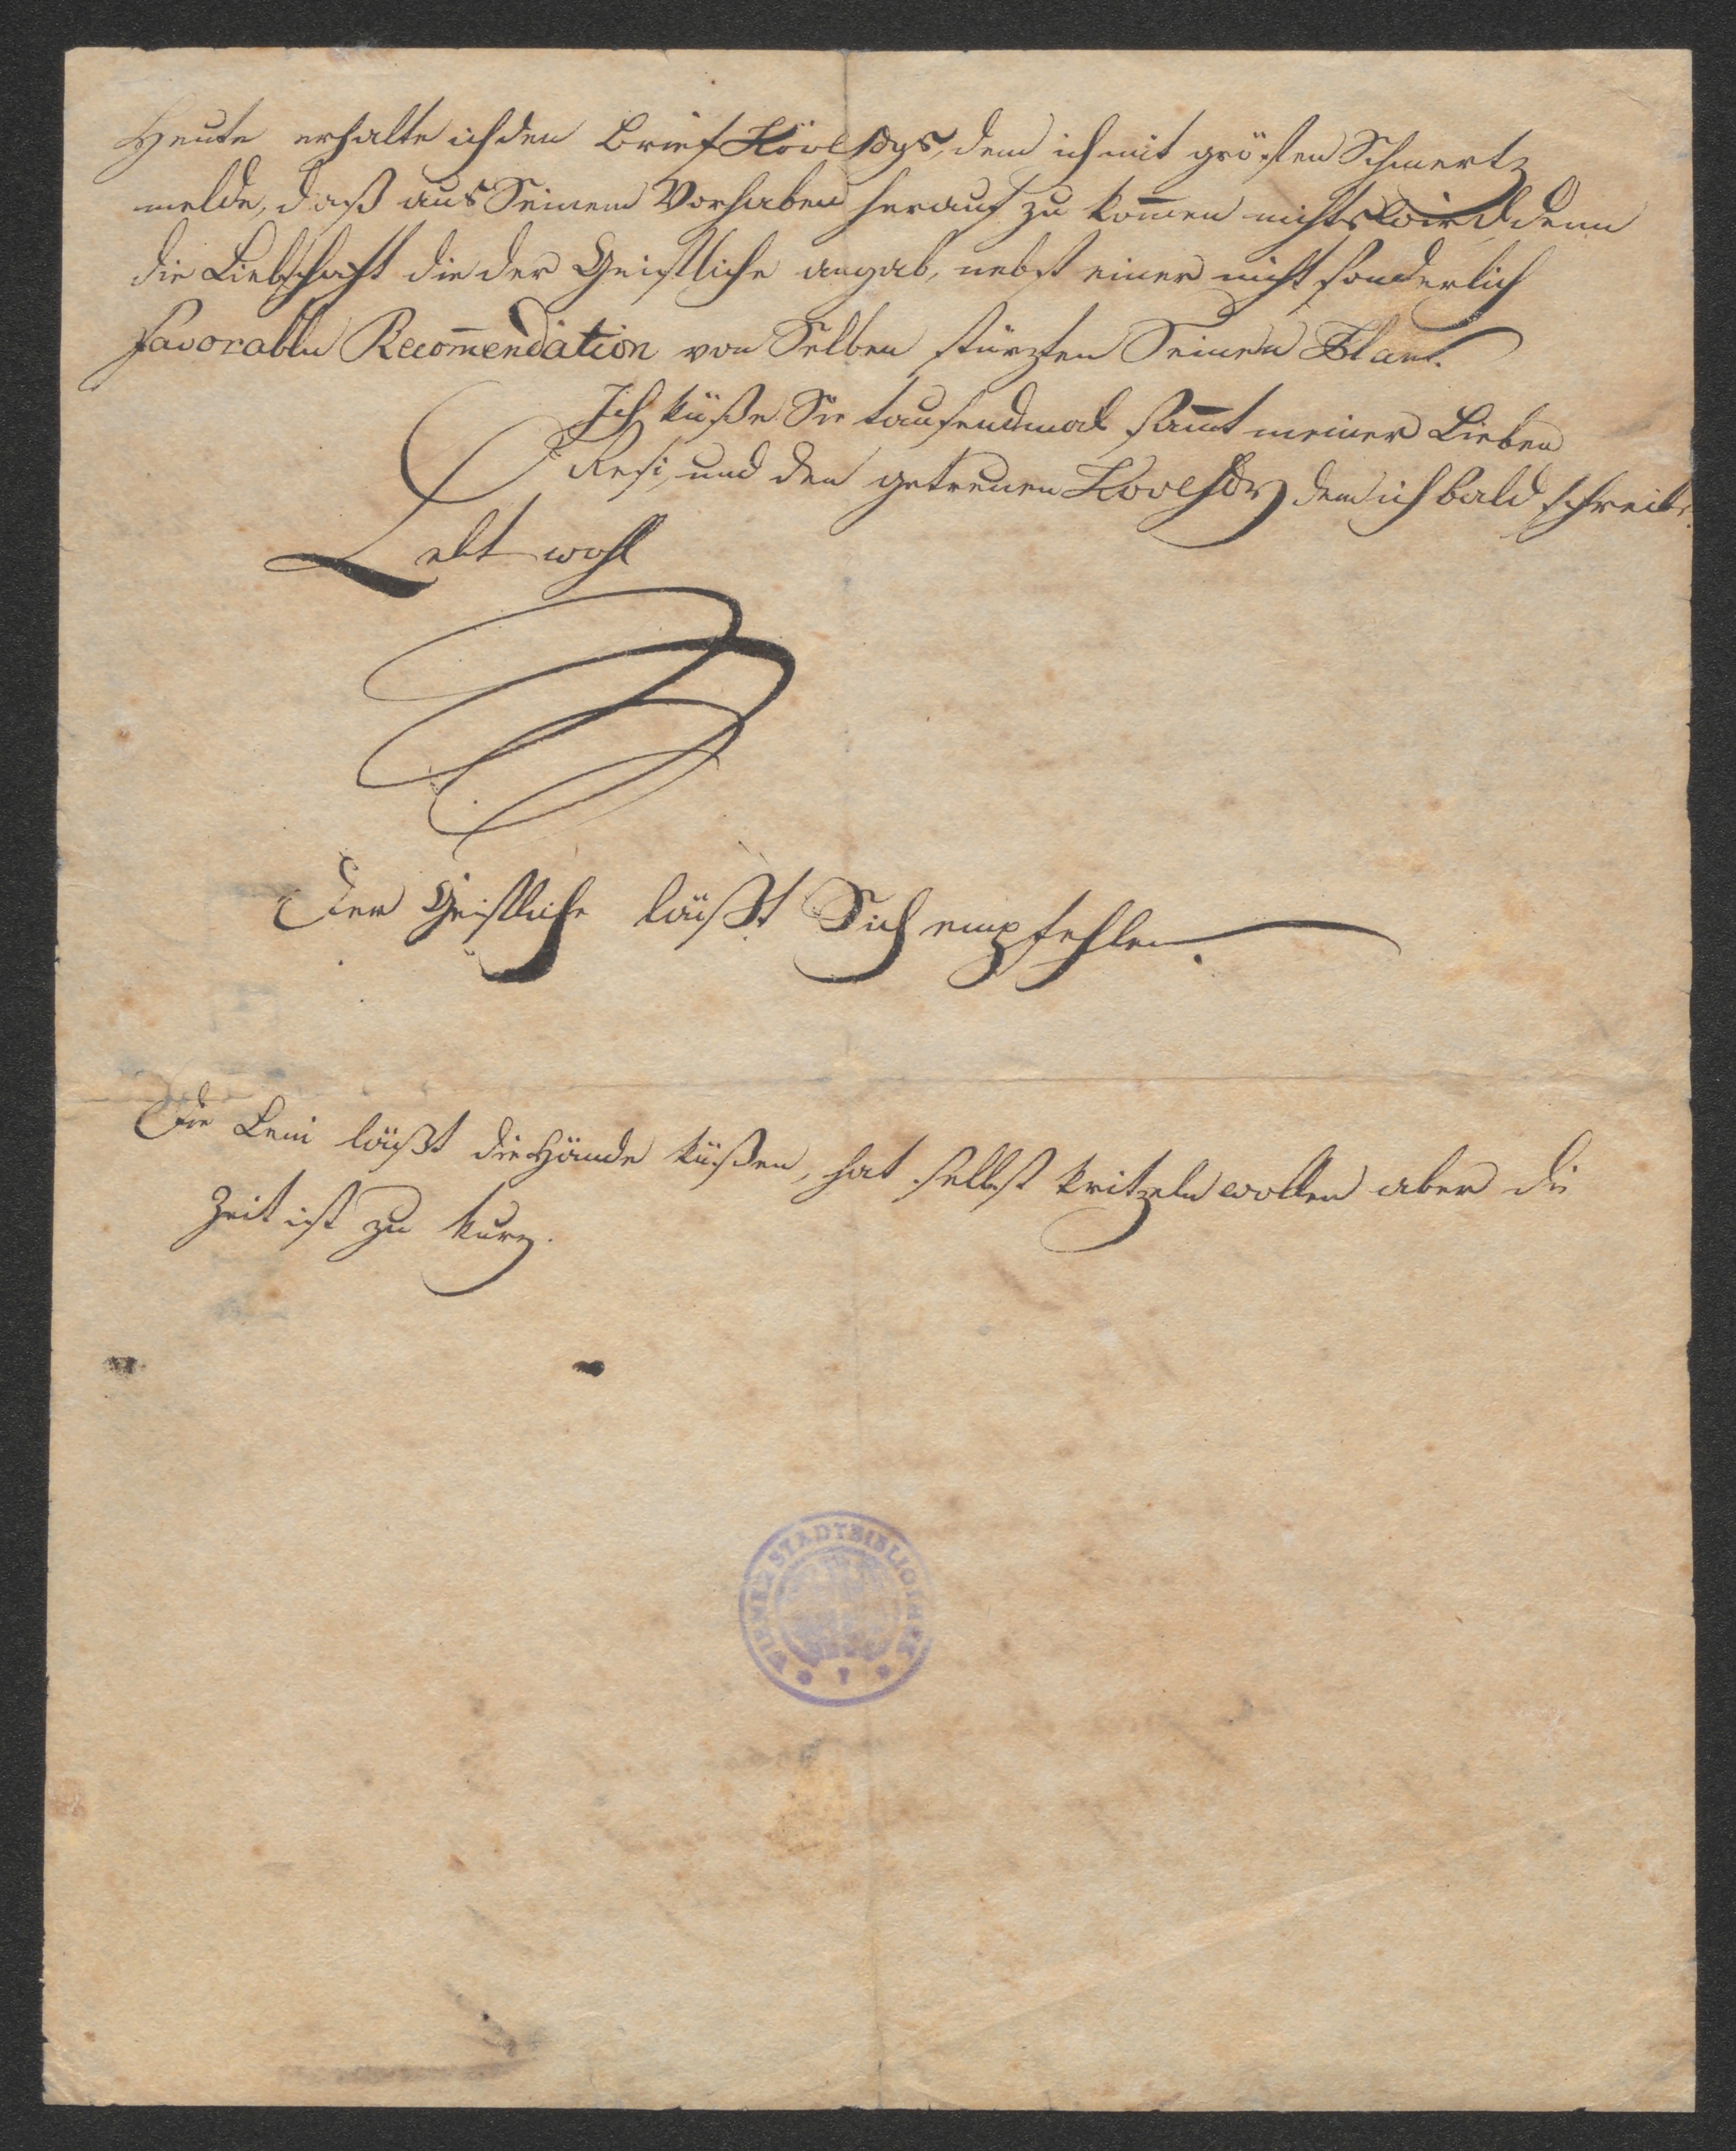 Heute erhalte ich den Brief Köve[lsdys], dem ich mit größten Schmertz
melde, daß aus Seinem Vorhaben herauf zu kom̄en nichts wird, denn
die Liebschaft die der Geistliche angab, nebst einer nicht sonderlich
favorablen Recom̄endation von Selben stürzten Seinen Plan.
Ich küße Sie tausendmal sam̄t meiner Lieben
Resi, und den getreuen dem ich bald schreibe.
Lebt wohl
Der Geistliche läßt Sich empfehlen.
Die Leni läßt die Hände küßen, hat selbst kritzeln wollen aber die
Zeit ist zu kurz.
WIENER STADTBIBLIOTHEK